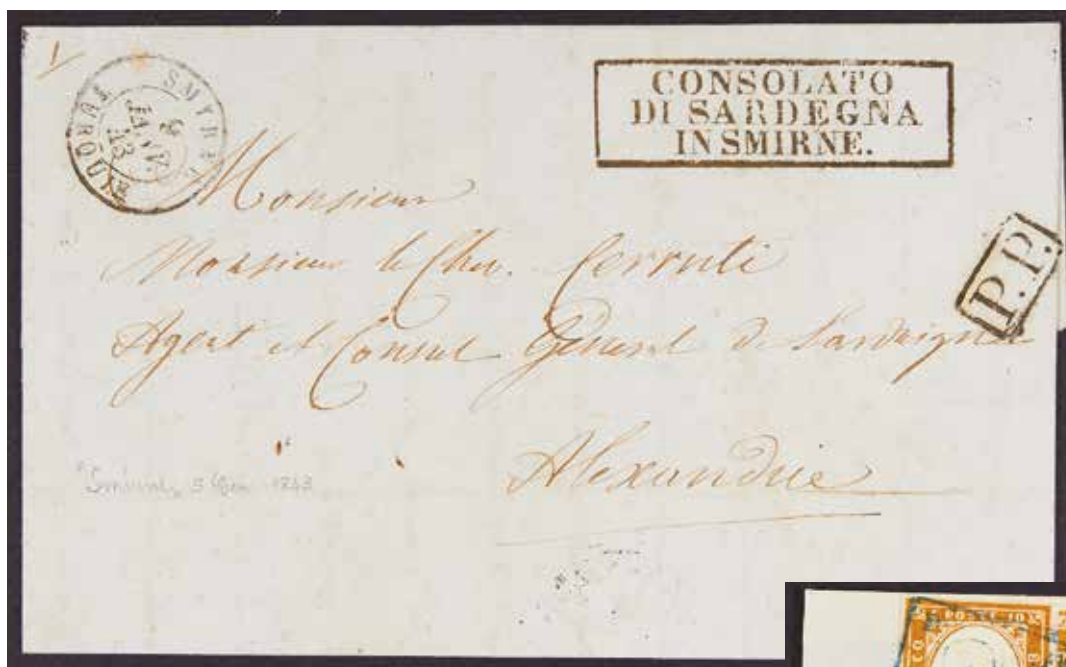 SMYRNE
9
JANV.
43
TURQUIE
CONSOLATO
DI SARDEGNA
IN SMIRNE.
P.P.
Monsieur
Monsieur le Chev. Cerruti
Agent et Consul Général de Sardaigne
Alexandrie
1843